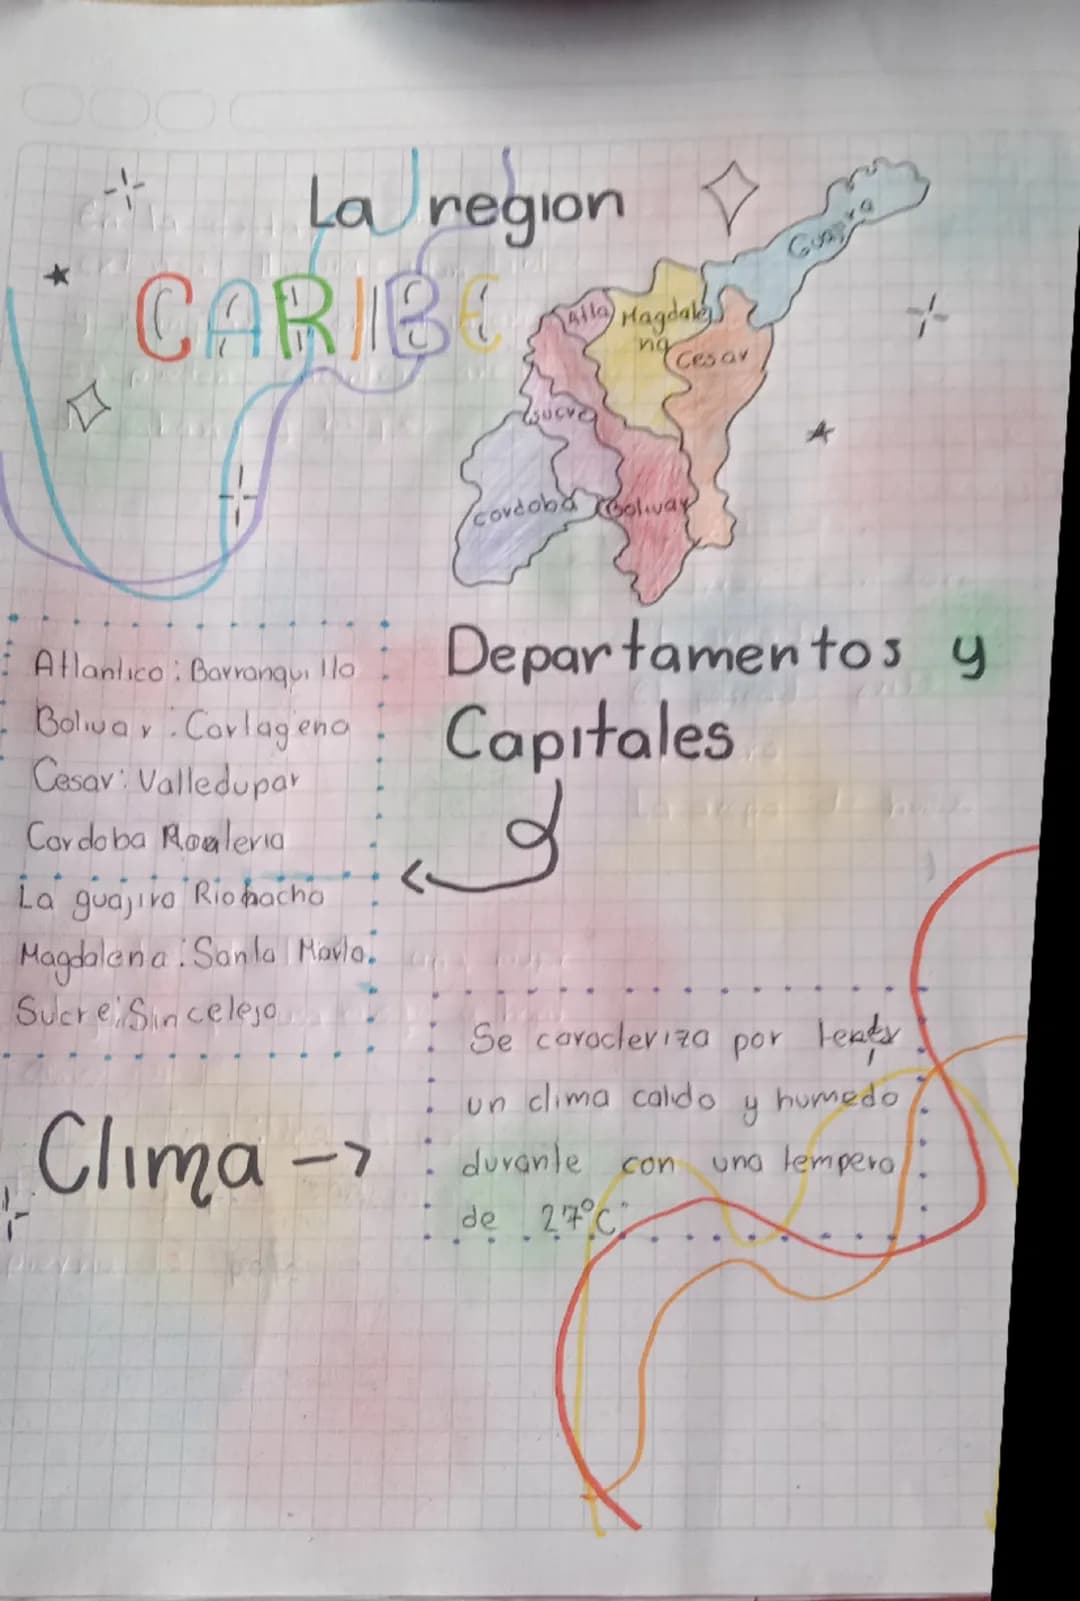 La region
CARIBE
Guajira
Atla
Magdale
na
Cesar
Sucre
Cordoba
Bolivar
Departamentos y
Capitales
Atlantico: Barranquilla
Bolivar: Cartagena
Cesar: Valledupar
Cordoba
La guajira Riohacha
Magdalena: Santa Marta.
Sucre: Sincelejo
Clima ->
Se caracteriza por tener
un clima calido y humedo
durante con una tempera
de 27°C.